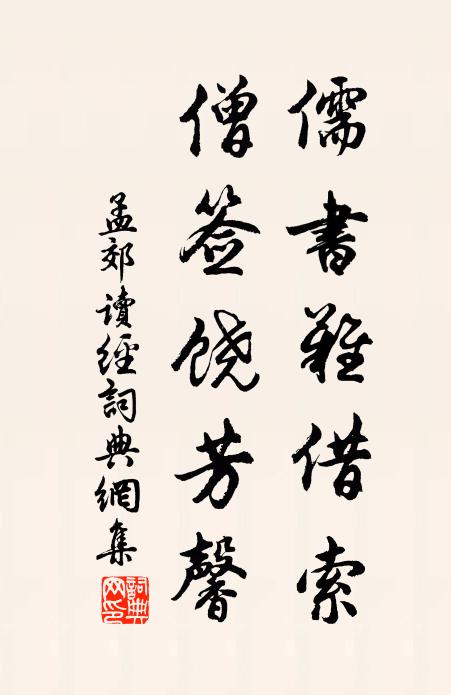 儒書難借索
僧签饶芳馨
孟郊讀經詞典網集
詞典网印